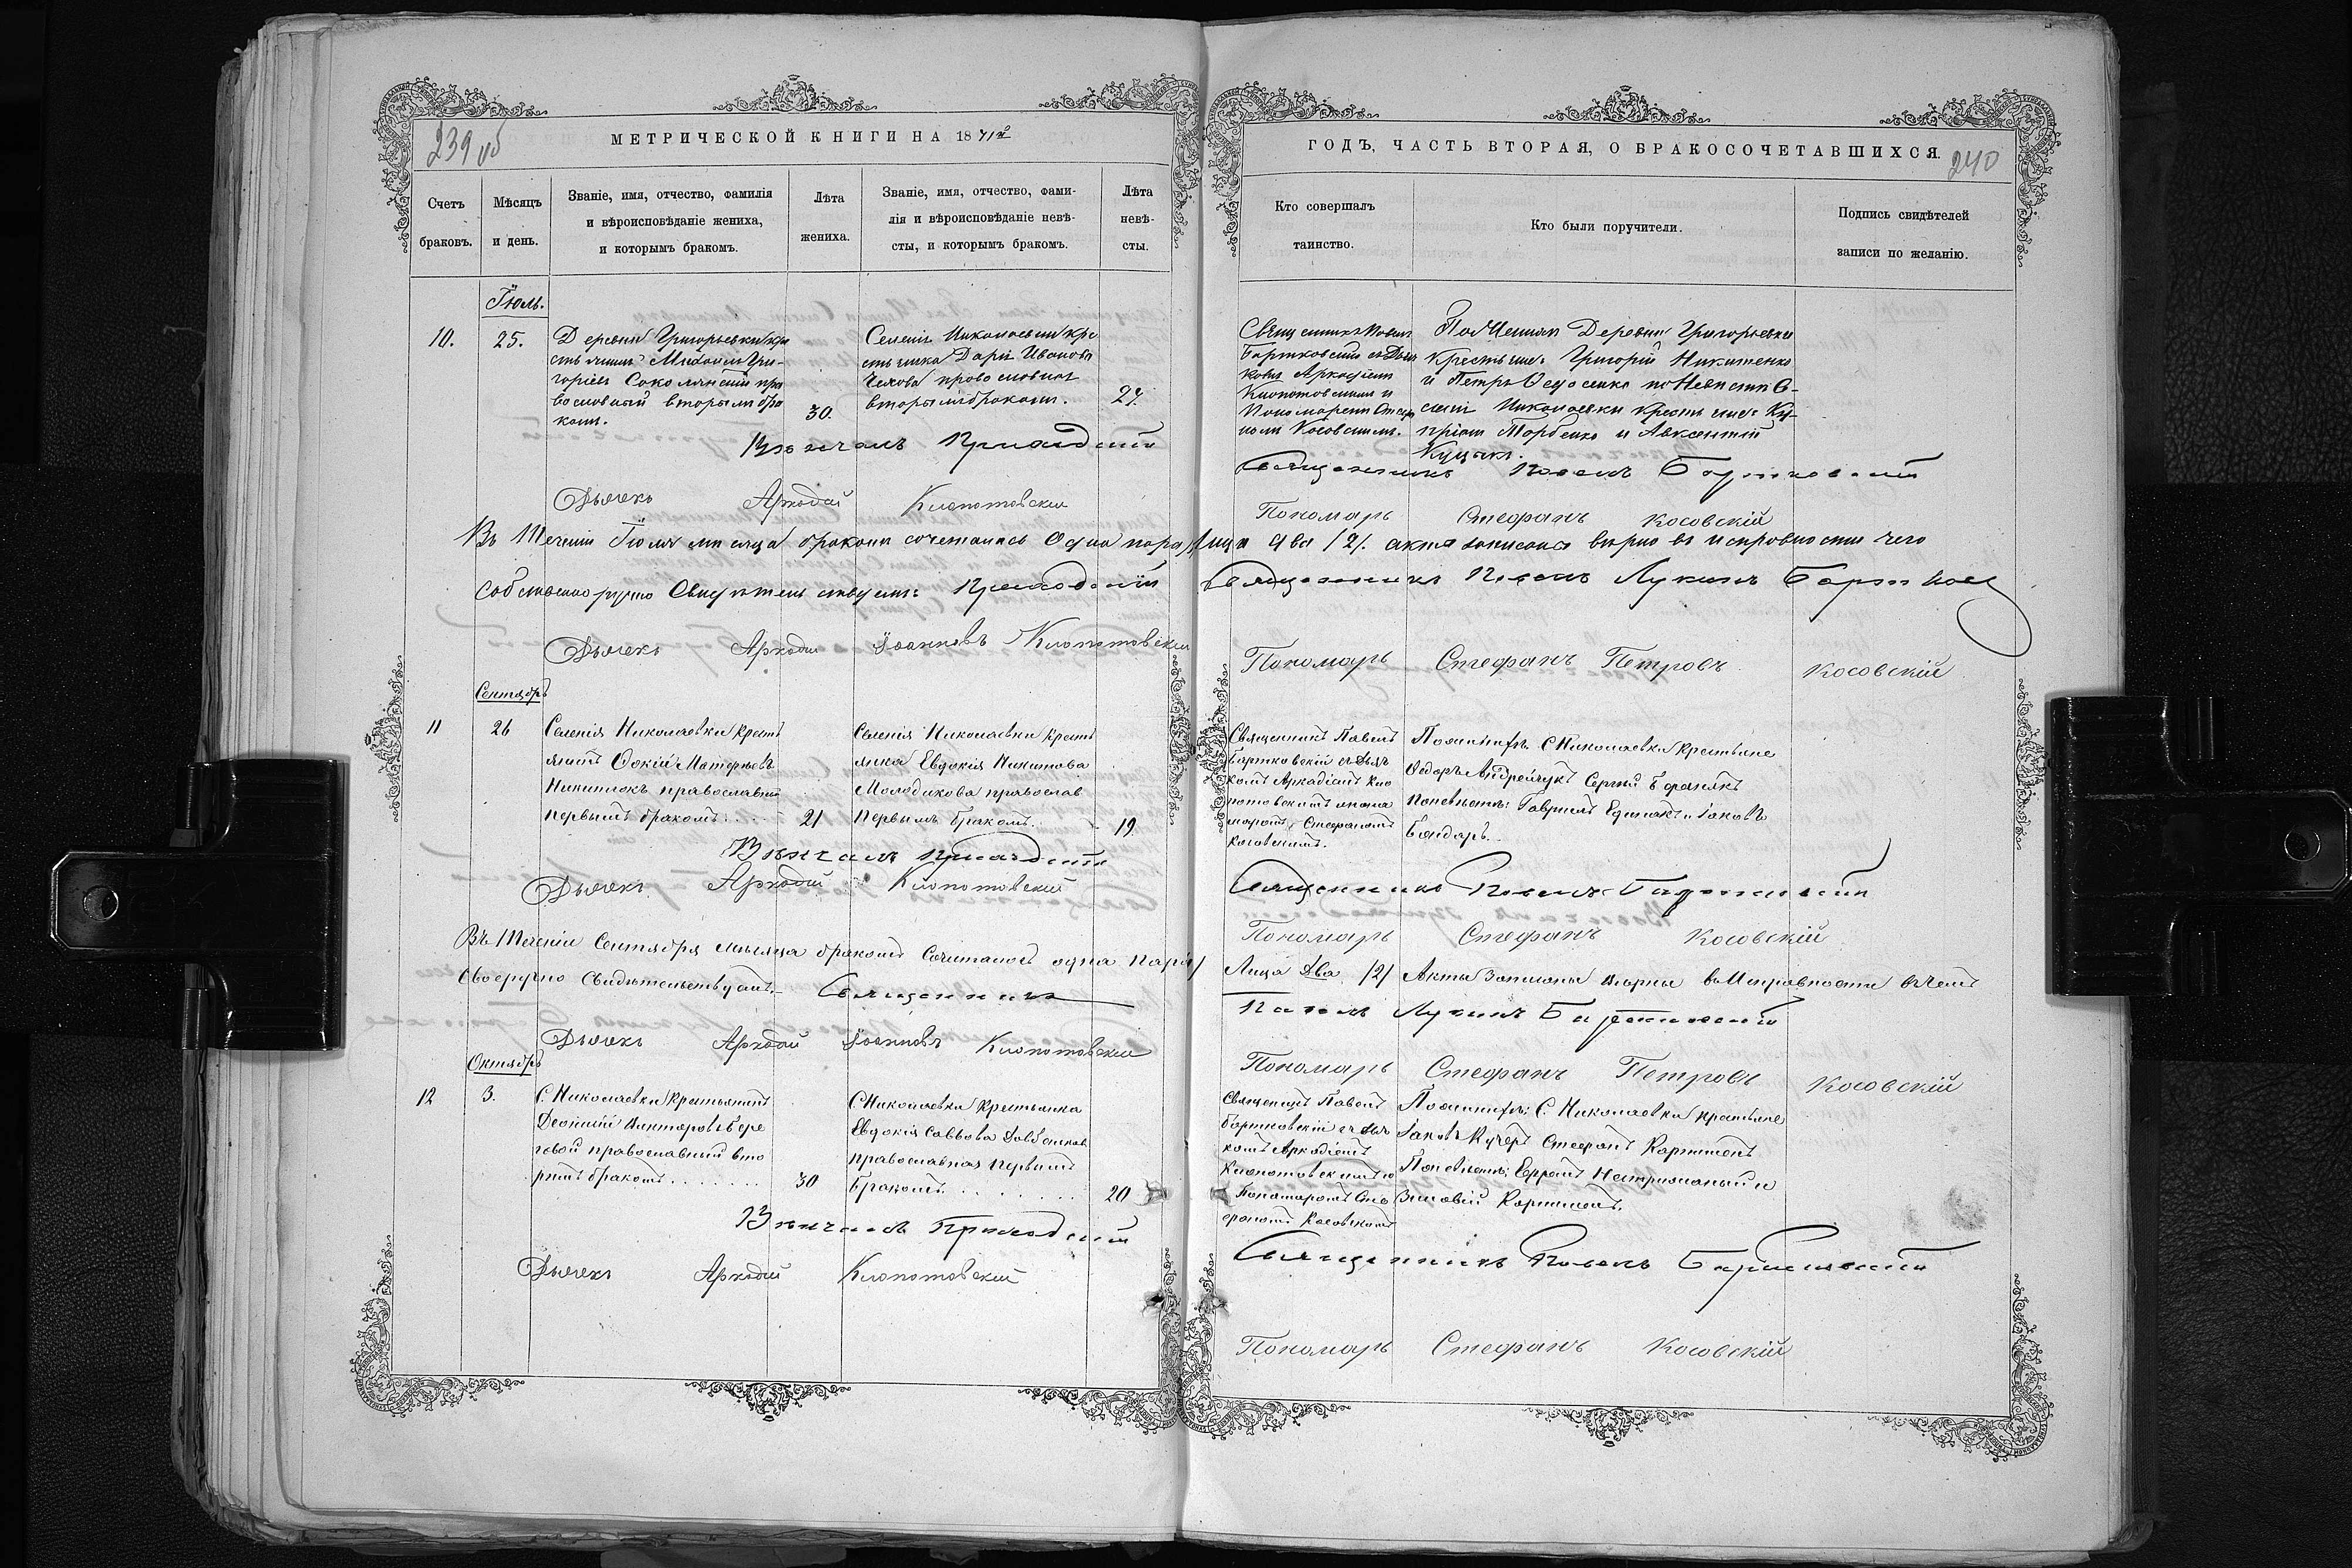 239 об
МЕТРИЧЕСКОЙ КНИГИ НА 1871й
Счетъ браковъ.
Мѣсяцъ и день.
Званіе, имя, отчество, фамилія
и вѣроисповѣданіе жениха,
и которымъ бракомъ.
Лѣта жениха.
Званіе, имя, отчество, фами-
лія и вѣроисповѣданіе невѣ-
сты, и которымъ бракомъ.
Лѣта невѣ-
сты.
ГОДЪ, ЧАСТЬ ВТОРАЯ, О БРАКОСОЧЕТАВШИХСЯ.
240
Кто совершалъ
таинство.
Кто были поручители.
Подпись свидѣтелей
записи по желанію.
Іюль.
10.
25.
Деревни Григорьевки кре
стьянинъ Григо-
рьевъ Соколянскій пра
вославный вторымъ бра
комъ.
30.
Селенія Николаевки кре
стьянка Дарія Иванова
православная
вторымъ бракомъ.
27.
Священникъ Павелъ
Бартковскій съ Дьяч
комъ Аркадіемъ
Клопотовскимъ и
Пономаремъ Стеф
номъ Косовскимъ.
По Женихѣ Деревни Григорьевки
Крестьяне: Григорій Никитенко
и Петръ по Невѣстѣ С-
еленія Николаевки крестьяне: Ки-
пріанъ Торбенко и Авксентій
Куцыкъ.
Вѣнчалъ Приходскій
Священникъ Павелъ Бартковскій
Дьячекъ Аркадій Клопотовскій
Пономарь Стефанъ Косовскій
Въ теченіи Іюля мѣсяца бракомъ сочеталась Одна пара / лица два /2/. акта записаны вѣрно въ исправности чего
собственноручно Свидѣтельствуемъ: Приходскій Священникъ Павелъ Лукинъ Бартков
Дьячекъ Аркадій Іоанновъ Клопотовскій
Пономарь Стефанъ Петровъ Косовскій
Сентябрь
11
26
Селенія Николаевки крестья
нинъ Фокій
Никитюкъ православный
первымъ бракомъ
21
Селенія Николаевки крестья
янка Евдокія Никитова
Молодикова православ
первымъ бракомъ.
19.
Священникъ Павелъ
Бартковскій съ Дьяч
комъ Аркадіемъ Кло
потовскимъ и поно
маремъ Стефаномъ
Косовскимъ.
По женихѣ: С Николаевки Крестьяне
Федоръ Андрейчукъ Сергій
По невѣстѣ: Гавріилъ и Іаковъ
Бондарь.
Вѣнчалъ Приходскій
Священникъ Павелъ Бартковскій
Дьячекъ Аркадій Клопотовскій
Пономарь Стефанъ Косовскій
Въ теченіи Сентября мѣсяца бракомъ Сочиталась одна пара /
Лица два /2/ Акты Записаны вѣрны въ Исправности въ чемъ
Своеручно Свидѣтельствуемъ. Священникъ
Павелъ Лукинъ Бартковскій
Дьячекъ Аркадій Іоанновъ Клопотовскій
Пономарь Стефанъ Петровъ Косовскій
Октябрь
12
3.
С. Николаевки Крестьянинъ
Бере
говой православный вто
рымъ бракомъ
30
С. Николаевки Крестьянка
Евдокія Саввова
православная первымъ
бракомъ.
20
Священникъ Павелъ
Бартковскій съ дьяч
комъ Аркадіемъ
Клопотовскимъ и
Пономаремъ Сте
фаномъ Косовскимъ
По женихѣ: С. Николаевки крестьяне
Іаковъ Кучеръ Стефанъ
По невѣстѣ: и
Зиновій
Вѣнчалъ Приходскій
Священникъ Павелъ Бартковскій
Дьячекъ Аркадій Клопотовскій
Пономарь Стефанъ Косовскій